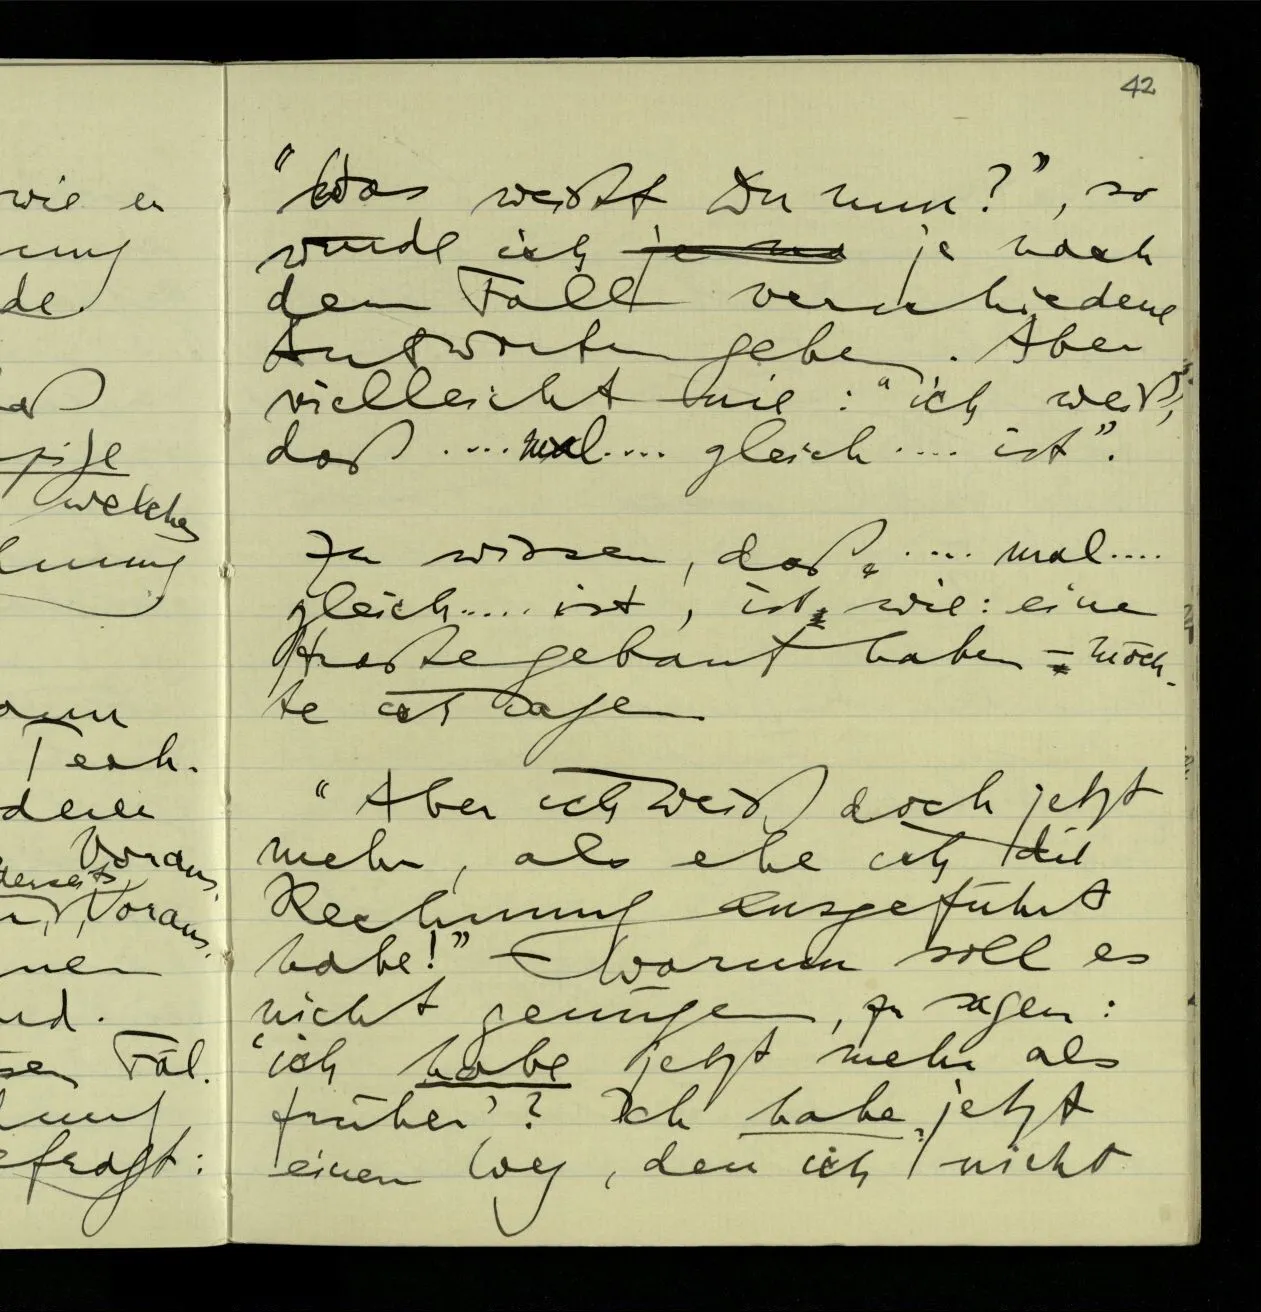 42
wie er
de.
welche
Teoh.
deren
Voraus.
Voraus.
nen
Fäl.
efragt:
"Was weißt Du nun?", so
wurde ich je na je nach
dem Fall verschiedene
Antworten geben. Aber
vielleicht nie: "ich weiß,
daß .... mal .... gleich .... ist".
Zu wissen, daß .... mal ....
gleich .... ist, ist wie: eine
Straße gebaut haben – möch-
te ich sagen
"Aber ich weiß doch jetzt
mehr, als ehe ich die
Rechnung ausgeführt
habe!" – Warum soll es
nicht genügen, zu sagen:
'ich habe jetzt mehr als
früher'? Ich habe jetzt
einen Weg, den ich nicht